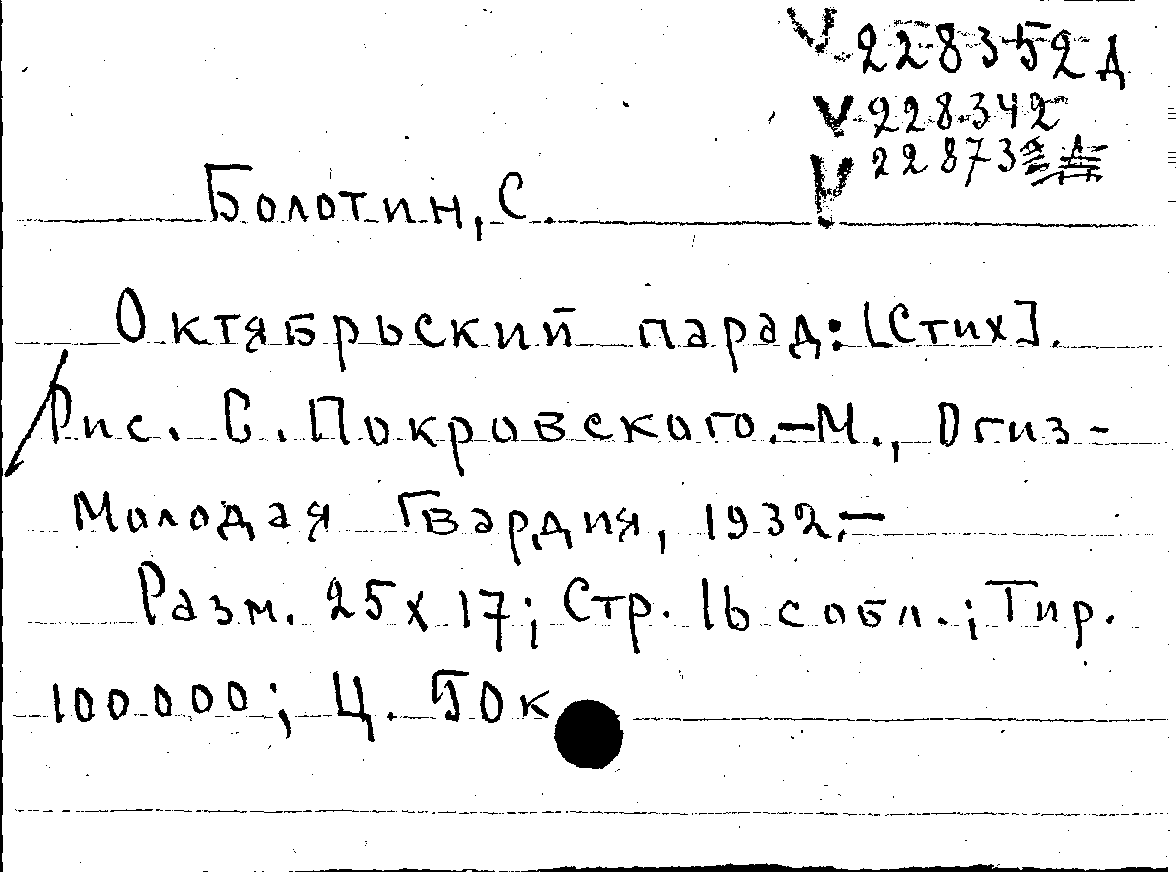 V 228352 д
V 228342
V 22873
Болотин, С.
Октябрьский парад: [Стих].
Рис. С. Покровского.—М., Огиз-
Молодая Гвардия, 1932.—
Разм. 25х17; Стр. 16 с обл.; Тир.
100000; Ц. 50к